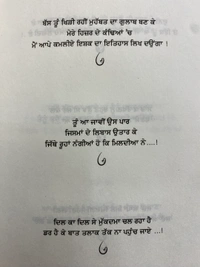 ਬੱਸ ਤੂੰ ਖਿੜੀ ਰਹੀਂ ਮੁਹੱਬਤ ਦਾ ਗੁਲਾਬ ਬਣ ਕੇ
ਮੇਰੇ ਹਿਜਰ ਦੇ ਕੰਢਿਆਂ 'ਚ
ਮੈਂ ਆਪੇ ਕਮਲੀਏ ਇਸ਼ਕ ਦਾ ਇਤਿਹਾਸ ਲਿਖ ਦਊਂਗਾ !
ਤੂੰ ਆ ਜਾਵੀਂ ਉਸ ਪਾਰ
ਜਿਸਮਾਂ ਦੇ ਲਿਬਾਸ ਉਤਾਰ ਕੇ
ਜਿੱਥੇ ਰੂਹਾਂ ਨੰਗੀਆਂ ਹੋ ਕਿ ਮਿਲਦੀਆਂ ਨੇ....!
ਦਿਲ ਕਾ ਦਿਲ ਸੇ ਮੁੱਕਦਮਾ ਚਲ ਰਹਾ ਹੈ
ਡਰ ਹੈ ਕੇ ਬਾਤ ਤਲਾਕ ਤੱਕ ਨਾ ਪਹੁੰਚ ਜਾਏ ...!